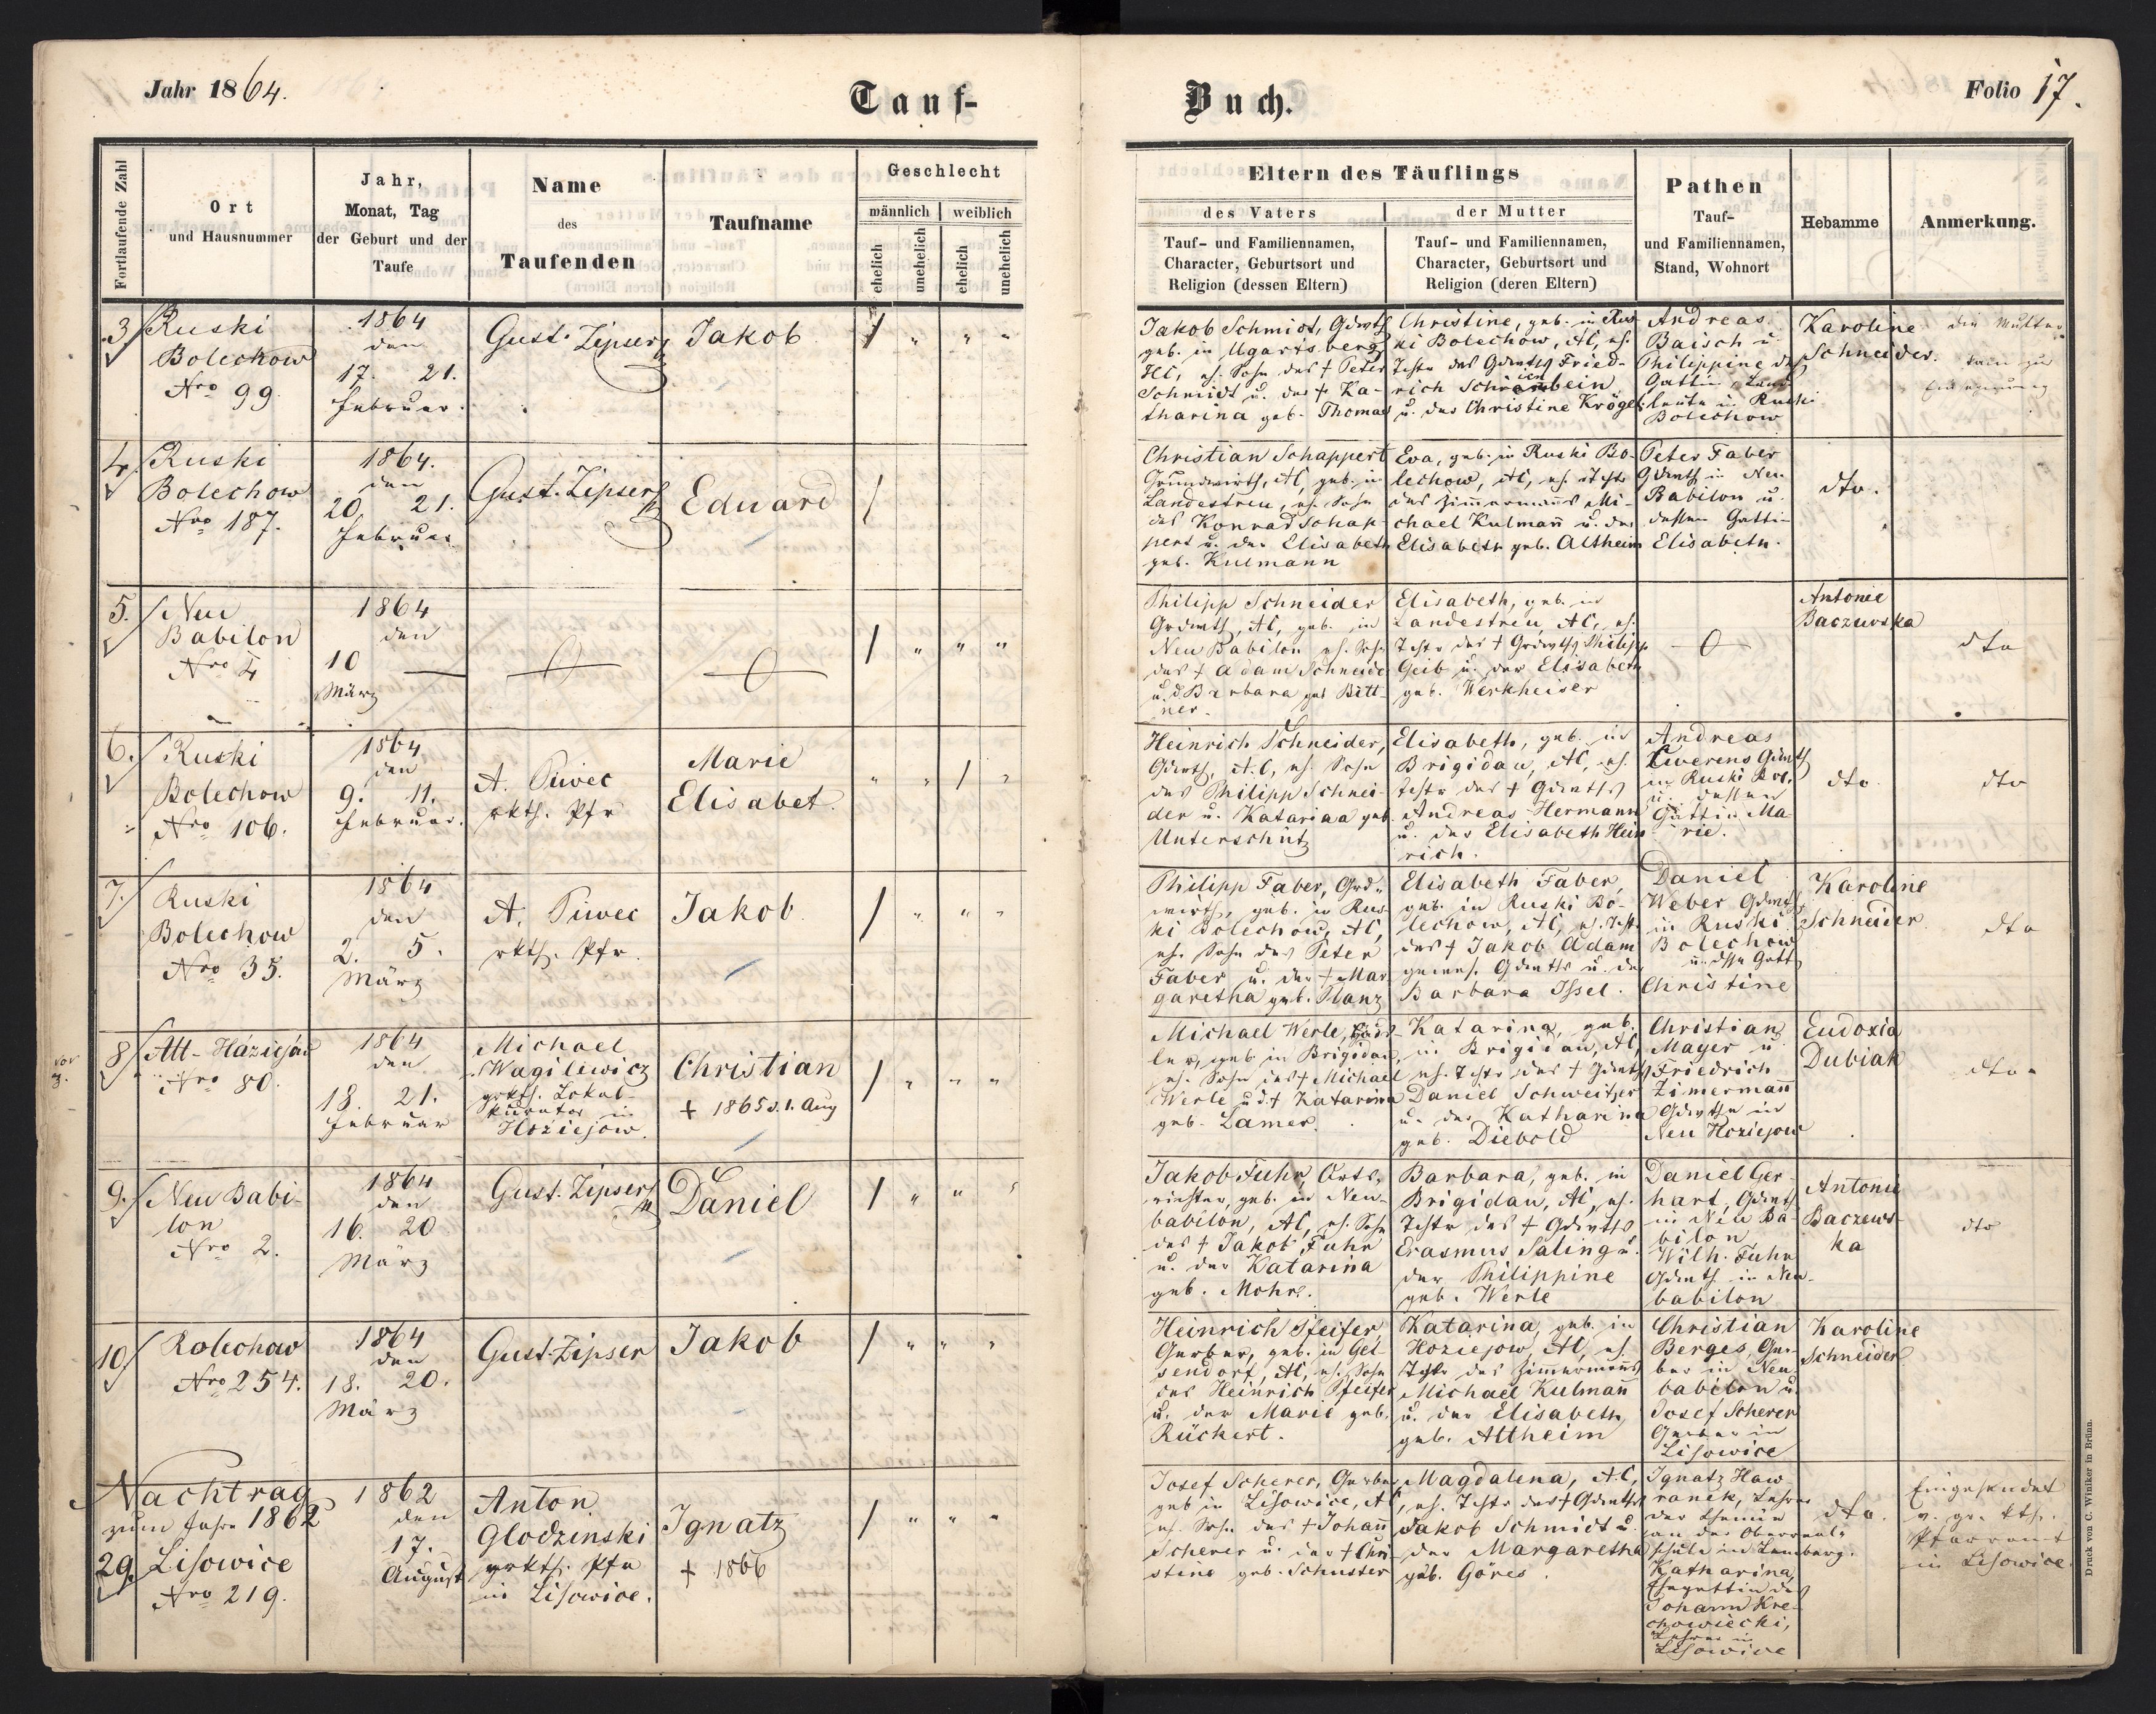 Jahr 1864.
Tauf-
Buch.
Folio 17.
Fortlaufende Zahl
Ort
und Hausnummer
Jahr,
Monat, Tag
der Geburt und der
Taufe
Name
des
Taufenden
Taufname
Geschlecht
männlich
weiblich
ehelich
unehelich
ehelich
unehelich
Eltern des Täuflings
des Vaters
Tauf- und Familiennamen,
Character, Geburtsort und
Religion (dessen Eltern)
der Mutter
Tauf- und Familiennamen,
Character, Geburtsort und
Religion (deren Eltern)
Pathen
Tauf-
und Familiennamen,
Stand, Wohnort
Hebamme
Anmerkung.
3
Ruski
Bolechow
Nro 99
1864
den
17. 21.
Februar.
Gust. Zipser
Jakob
/ " " "
Jakob Schmidt, Gdwth
geb. in Ugartsberg
HC, eh. Sohn des † Peter
Schmidt u. der † Ka-
tharina geb. Thomas
Christine, geb. in Rus-
ki Bolechow, AC, eh.
Tchtr des Gdwths Fried-
rich Schreinbein
u. der Christine Krögel
Andreas
Baisch u
Philippine d
Gattin, Land
leute in Ruski
Bolechow
Karoline
Schneider.
die Mutter
kam zur
Einsegnung
4.
Ruski
Bolechow
Nro 187.
1864.
den
20. 21.
Februar
Gust. Zipser
Eduard
/
Christian Schappert
Grundwirth, AC, geb. in
Landestreu, eh. Sohn
des Konrad Schap-
pert u. der Elisabeth
geb. Kulmann
Eva, geb. in Ruski Bo-
lechow, AC, eh. Tchtr
des Zimmermanns Mi-
chael Kulmañ u. der
Elisabeth geb. Altheim
Peter Faber
Gdwth in Neu
Babilon u.
dessen Gattin
Elisabeth.
dto.
5.
Neu
Babilon
Nro 4
1864
den
10
März
/ " " "
Philipp Schneider
Grdwth, AC, geb. in
Neu Babilon eh. Sohn
des † Adam Schneider
u. d Barbara geb Bitt-
ner.
Elisabeth, geb. in
Landestreu AC, eh.
Tchtr des † Grdwths Philipp
Geib u. der Elisabeth
geb. Werkheiser
Antonie
Baczewska
dto
6.
Ruski
Bolechow
Nro 106.
1864
den
9. 11.
Februar.
A. Piwec
rkth. Pfr
Marie
Elisabet.
" " / "
Heinrich Schneider,
Gdwth, A.C, eh. Sohn
des Philipp Schnei-
der u. Katarina geb.
Unterschütz
Elisabeth, geb. in
Brigidau, AC, eh.
Tchtr des † Gdwths
Andreas Hermann
u. der Elisabeth Hein
rich.
Andreas
Gdwth
in Ruski Bol.
u. dessen
Gattin Ma
rie.
dto
dto
7.
Ruski
Bolechow
Nro 35.
1864
den
2. 5.
März
A. Piwec
rkth. Pfr.
Jakob
/ " " "
Philipp Faber, Grd-
wirth, geb. in Rus-
ki Bolechow, AC,
eh. Sohn des Peter
Faber u. der † Mar
garetha geb. Manz
Elisabeth Faber,
geb. in Ruski Bo-
lechow, AC, eh. Tcht.
des † Jakob Adam
gewes. Gdwths u. der
Barbara Issel.
Daniel
Weber Gdwth
in Ruski
Bolechow
u. dssn Gatt
Christine
Karoline
Schneider
dto
8
Alt-Hoziejów
Nro 80.
1864
den
18. 21.
Februar
Michael
Wagilewicz
grkth. Lokal-
kurator in
Hoziejow.
Christian
† 1865 d. 1. Aug
/ " " "
Michael Werle,
ler, geb in Brigidau,
eh. Sohn des † Michael
Werle u d. † Katarina
geb. Lamer.
Katarina, geb.
in Brigidau, AC,
eh. Tchtr des † Gdwths
Daniel Schweitzer
u. der Katharina
geb. Diebold
Christian
Mayer u
Friedrich
Zimermañ
Gdwthe in
Neu Hoziejow
Eudoxia
Dubiak
dto.
9.
Neu Babi-
lon
Nro 2.
1864
den
16. 20
März
Gust. Zipser
Daniel
/ " " "
Jakob Fuhr, Orts-
richter, geb. in Neu-
babilon, AC, eh. Sohn
des † Jakob Fuhr
u. der Katarina
geb. Mohr.
Barbara, geb. in
Brigidau, AC, eh.
Tchtr des † Gdwths
Erasmus Saling u.
der Philippine
geb. Werle
Daniel Ger-
hart, Gdwth
in Neu Ba-
bilon
Wilh. Fuhr
Gdwth in Neu-
babilon
Antonie
Baczews-
ka
dto
10
Bolechow
Nro 254.
1864
den
18. 20.
März
Gust. Zipser
Jakob
/ " " "
Heinrich Pfeifer,
Gerber, geb. in Gel-
sendorf, AC, eh. Sohn
des Heinrich Pfeifer
u. der Marie geb.
Rückert.
Katarina, geb. in
Hoziejow, AC, eh.
Tchtr des Zimmermanns
Michael Kulmañ
u. der Elisabeth
geb. Altheim
Christian
Berges, Ger-
ber in Neu
babilon u.
Josef Scherer
Gerber in
Lisowice
Karoline
Schneider
Nachtrag
zum Jahre 1862
29.
Lisowice
Nro 219.
1862
den
17.
August
Anton
Glodzinski
grkth. Pfr
in Lisowice.
Ignatz
† 1866
/ " " "
Josef Scherer, Gerber
geb in Lisowice, AC,
eh. Sohn des † Johañ
Scherer u. der † Chri-
stine geb. Schuster
Magdalena, AC,
eh. Tchtr des † Gdwths
Jakob Schmidt u.
der Margaretha
geb. Göres.
Ignatz Haw
ranek, Lehrer
der Chemie
an der Oberreal-
schule in Lemberg.
Katharina,
Ehegattin des
Johann Kre-
chowiecki,
Lehrer in
Lisowice
dto.
Eingesendet
v. gr. kth.
Pfarramt
in Lisowice.
Druck von C. Winiker in Brünn.